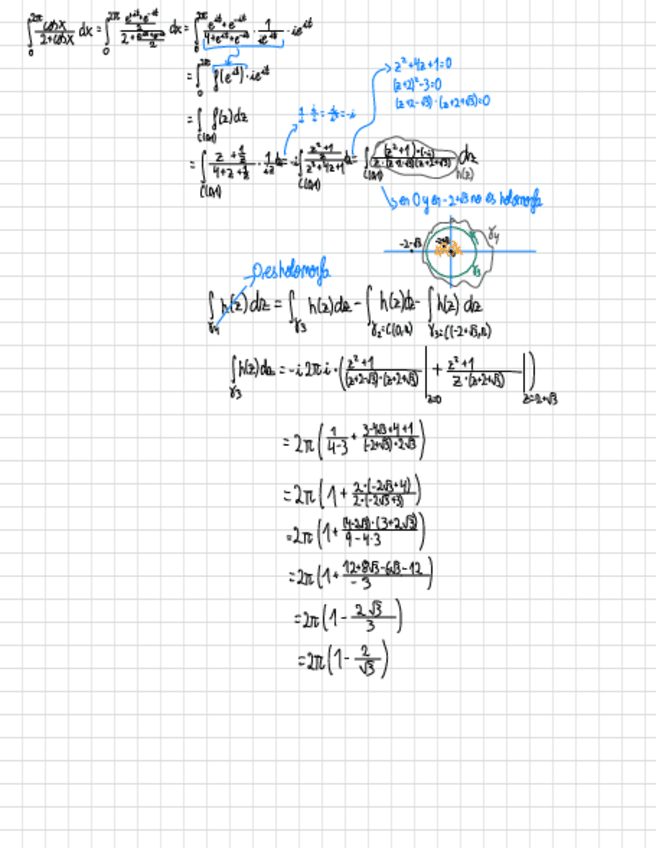 ∫₀^{2π} cos x / (2+cos x) dx = ∫₀^{2π} ((e^{it}+e^{-it})/2) / (2+(e^{it}+e^{-it})/2) dx = ∫₀^{2π} (e^{it}+e^{-it})/(4+e^{it}+e^{-it}) · 1/(ie^{it}) · ie^{it}
= ∫₀^{2π} f(e^{it}) · ie^{it}
z²+4z+1=0
(z+2)²-3=0
(z+2-√3)·(z+2+√3)=0
= ∫_{C(0,1)} f(z)dz
= ∫_{C(0,1)} (z+1/z)/(4+z+1/z) · 1/(iz) dz = -i ∫_{C(0,1)} (z²+1)/(z²+4z+1) dz = ∫_{C(0,1)} (z²+1)·(-i)/(z·(z+2-√3)(z+2+√3)) dz
h(z)
en 0 y en -2+√3 no es holomorfa
-2-√3
γ₄
γ₃
0 es holomorfa
∫_{γ₄} h(z)dz = ∫_{γ₃} h(z)dz - ∫_{γ₂=C(0,ε)} h(z)dz - ∫_{γ₃=C(-2+√3,ε)} h(z)dz
∫_{γ₃} h(z)dz = -i2πi·( (z²+1)/((z+2-√3)·(z+2+√3)) |_{z=0} + (z²+1)/(z·(z+2+√3)) |_{z=-2+√3} )
= 2π( 1/(4-3) + (3-4√3+4+1)/((-2+√3)·2√3) )
= 2π( 1 + 2·(-2√3+4)/(2·(-2√3+3)) )
= 2π( 1 + (4-2√3)·(3+2√3)/(9-4·3) )
= 2π( 1 + (12+8√3-6√3-12)/(-3) )
= 2π( 1 - 2√3/3 )
= 2π( 1 - 2/√3 )